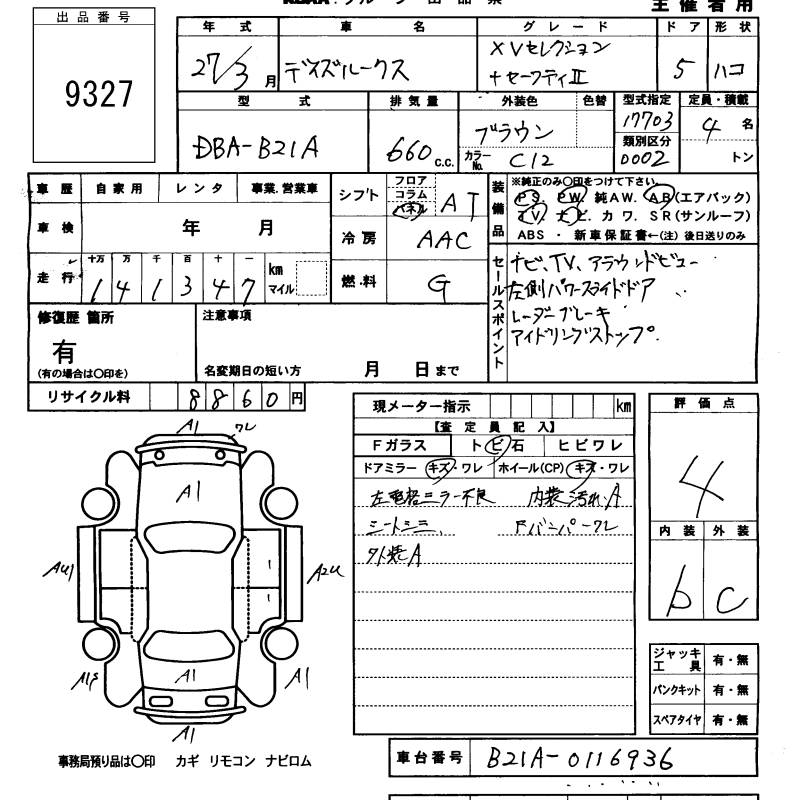 主催者用
出品番号
9327
年式 車名 グレード ドア 形状
27/3月 デイズルークス XVセレクション 5 ハコ
+セーフティII
型式 排気量 外装色 色替 型式指定 定員・積載
DBA-B21A 660 c.c. ブラウン 17703 4名
類別区分
カラーNo. C12 0002 トン
車歴 自家用 レンタ 事業.営業車
車検 年 月
走行 十万 万 千 百 十 一 km マイル
1 4 1 3 4 7
シフト フロア コラム パネル AT
冷房 AAC
燃料 G
装備品
※純正のみ〇印をつけて下さい。
PS. PW. 純AW. AB(エアバック)
TV. ナビ. カワ. SR(サンルーフ)
ABS ・ 新車保証書←(注)後日送りのみ
セールスポイント
ナビ、TV、アラウンドビュー
左側パワースライドドア
レーダーブレーキ
アイドリングストップ.
修復歴 箇所
有
(有の場合は〇印を)
注意事項
名変期日の短い方 月 日まで
リサイクル料 8860円
現メーター指示 km
【査定員記入】
Fガラス トビ石 ヒビワレ
ドアミラー キズ・ワレ ホイール(CP) キズ・ワレ
左電格ミラー不良 内装汚れ.A
シートシミ、 Fバンパーワレ
外装A
評価点
4
内装 外装
b c
ジャッキ工具 有・無
パンクキット 有・無
スペアタイヤ 有・無
A1 ワレ
A1
A2U
A1
A1
A1
事務局預り品は〇印 カギ リモコン ナビロム
車台番号 B21A-0116936